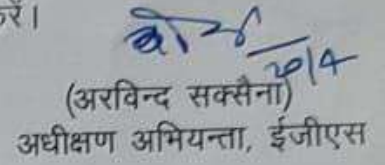 करें।
20/4
(अरविन्द सक्सैना)
अधीक्षण अभियन्ता, ईजीएस